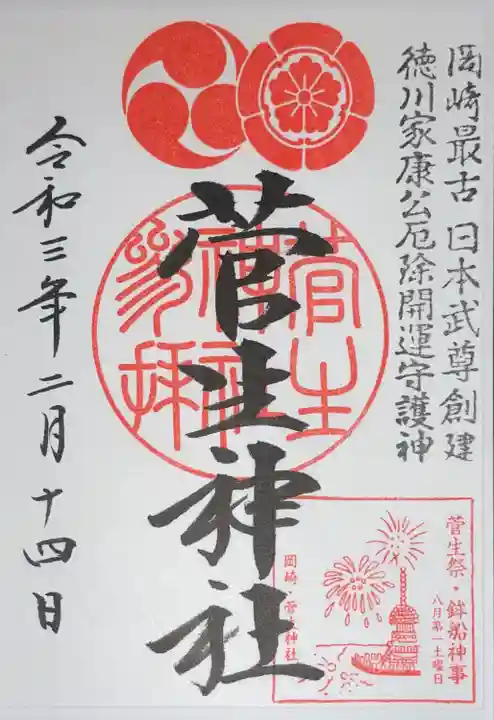 岡崎最古 日本武尊創建
徳川家康公厄除開運守護神
菅生神社
令和三年二月十四日
菅生神社参拝
菅生祭・鉾船神事
八月第一土曜日
岡崎・菅生神社